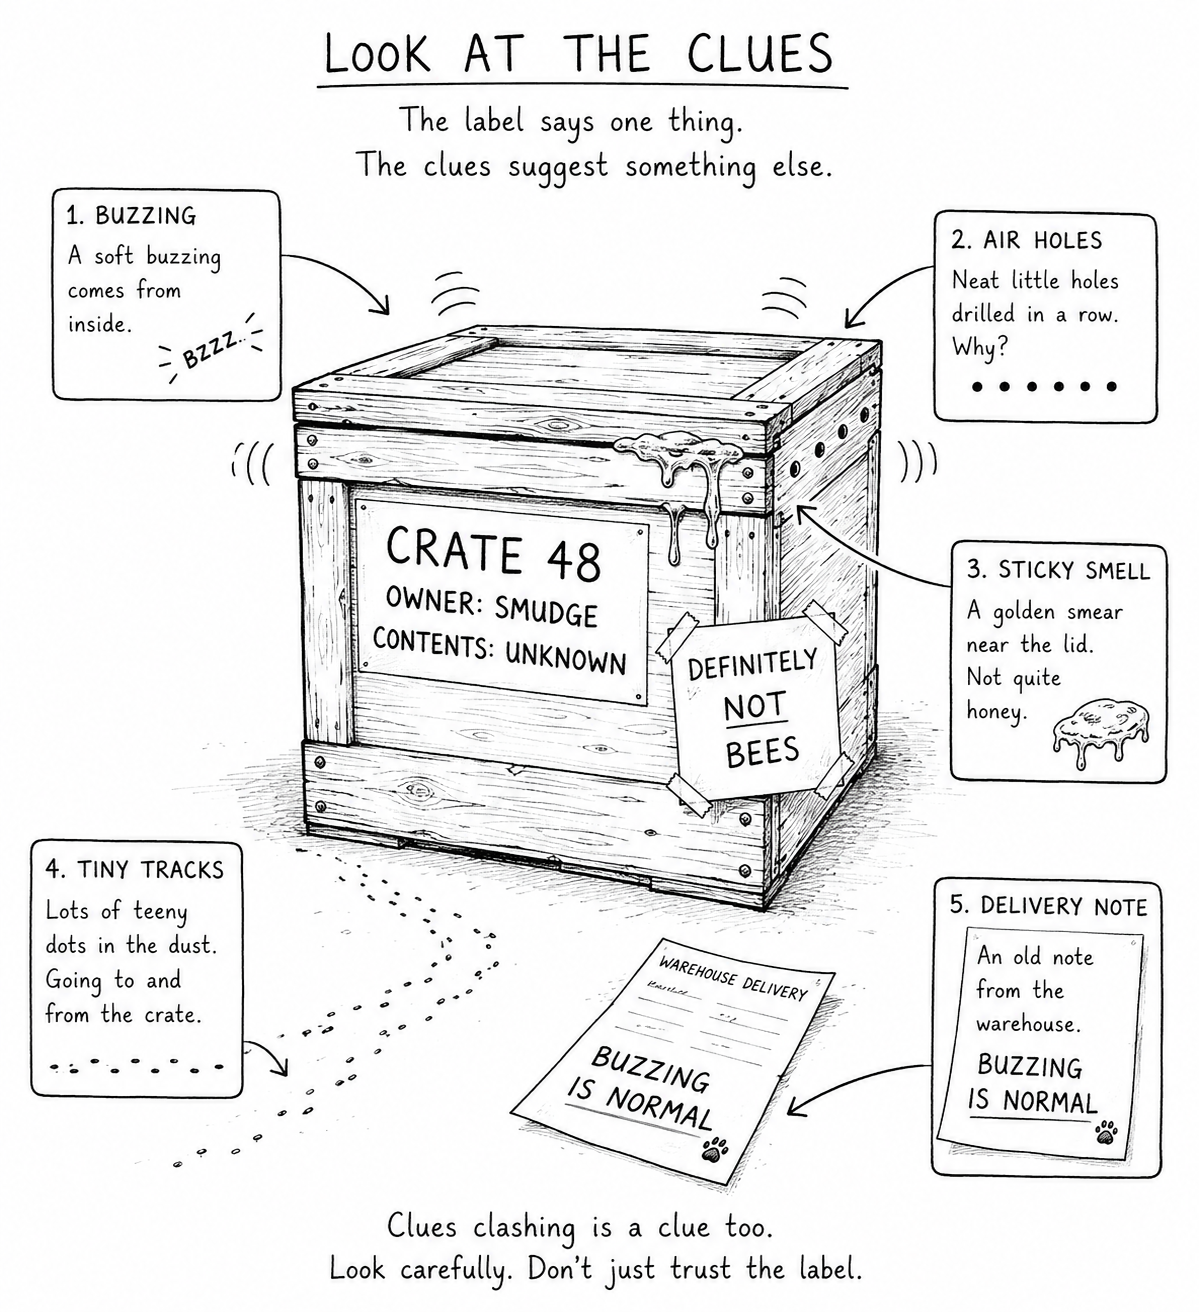 LOOK AT THE CLUES
The label says one thing.
The clues suggest something else.
1. BUZZING
A soft buzzing
comes from
inside.
BZZZ...
2. AIR HOLES
Neat little holes
drilled in a row.
Why?
CRATE 48
OWNER: SMUDGE
CONTENTS: UNKNOWN
DEFINITELY
NOT
BEES
3. STICKY SMELL
A golden smear
near the lid.
Not quite
honey.
4. TINY TRACKS
Lots of teeny
dots in the dust.
Going to and
from the crate.
WAREHOUSE DELIVERY
BUZZING
IS NORMAL
5. DELIVERY NOTE
An old note
from the
warehouse.
BUZZING
IS NORMAL
Clues clashing is a clue too.
Look carefully. Don't just trust the label.